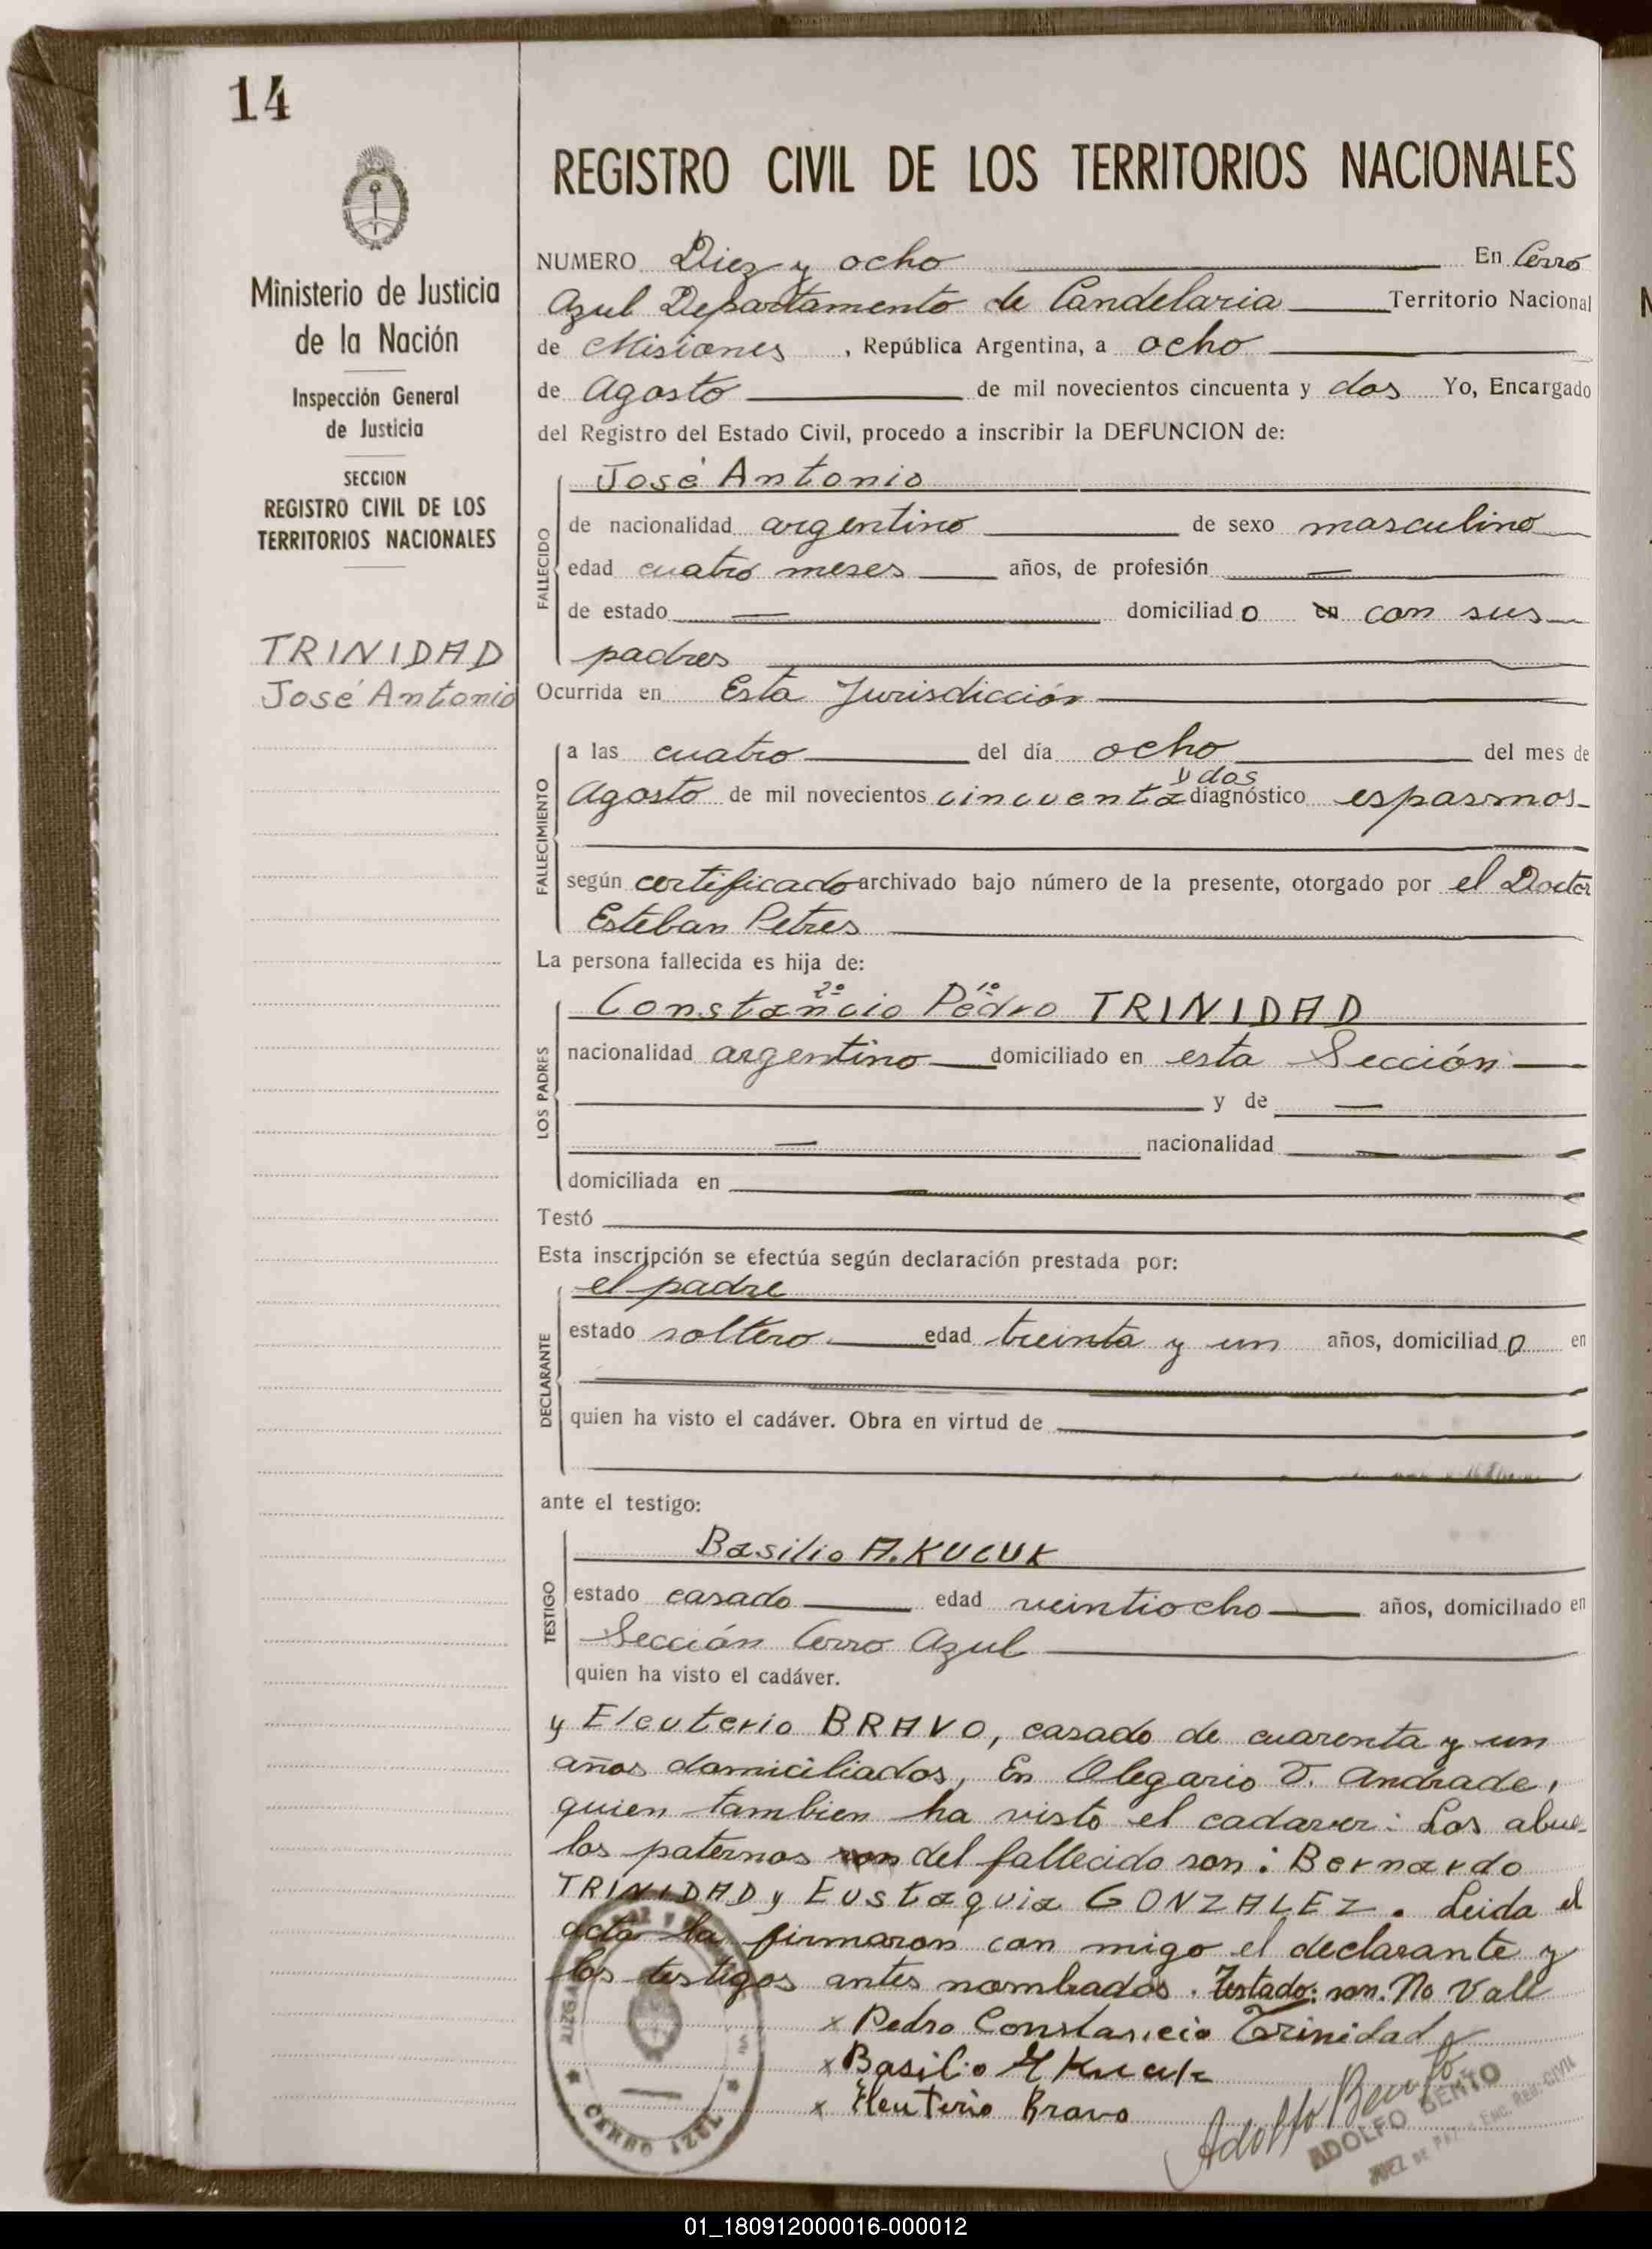 14
Ministerio de Justicia
de la Nación
Inspección General
de Justicia
SECCION
REGISTRO CIVIL DE LOS
TERRITORIOS NACIONALES
TRINIDAD
José Antonio
REGISTRO CIVIL DE LOS TERRITORIOS NACIONALES
NUMERO Diez y ocho En Cerro
Azul Departamento de Candelaria Territorio Nacional
de Misiones, República Argentina, a ocho
de Agosto de mil novecientos cincuenta y dos Yo, Encargado
del Registro del Estado Civil, procedo a inscribir la DEFUNCION de:
FALLECIDO
José Antonio
de nacionalidad argentino de sexo masculino
edad cuatro meses años, de profesión —
de estado — domiciliado en con sus
padres
Ocurrida en Esta Jurisdicción
FALLECIMIENTO
a las cuatro del día ocho del mes de
y dos
Agosto de mil novecientos cincuenta diagnóstico espasmos
según certificado archivado bajo número de la presente, otorgado por el Doctor
Esteban Petres
La persona fallecida es hija de:
LOS PADRES
2º 1º
Constancio Pedro TRINIDAD
nacionalidad argentino domiciliado en esta Sección
y de —
— nacionalidad
domiciliada en
Testó
Esta inscripción se efectúa según declaración prestada por:
DECLARANTE
el padre
estado soltero edad treinta y un años, domiciliado en
quien ha visto el cadáver. Obra en virtud de
ante el testigo:
TESTIGO
Basilio A. KUCUK
estado casado edad veintiocho años, domiciliado en
Sección Cerro Azul
quien ha visto el cadáver.
y Eleuterio BRAVO, casado de cuarenta y un
años domiciliados, En Olegario V. Andrade,
quien tambien ha visto el cadaver: Los abue-
los paternos son del fallecido son: Bernardo
TRINIDAD y Eustaquia GONZALEZ. Leida el
acta la firmaron con migo el declarante y
los testigos antes nombrados. Testado: son. No Vale
x Pedro Constancio Trinidad
x Basilio Kucuk
x Eleuterio Bravo
Adolfo Bento
ADOLFO BENTO
JUEZ DE PAZ Y ENC. REG. CIVIL
CERRO AZUL
01_180912000016-000012